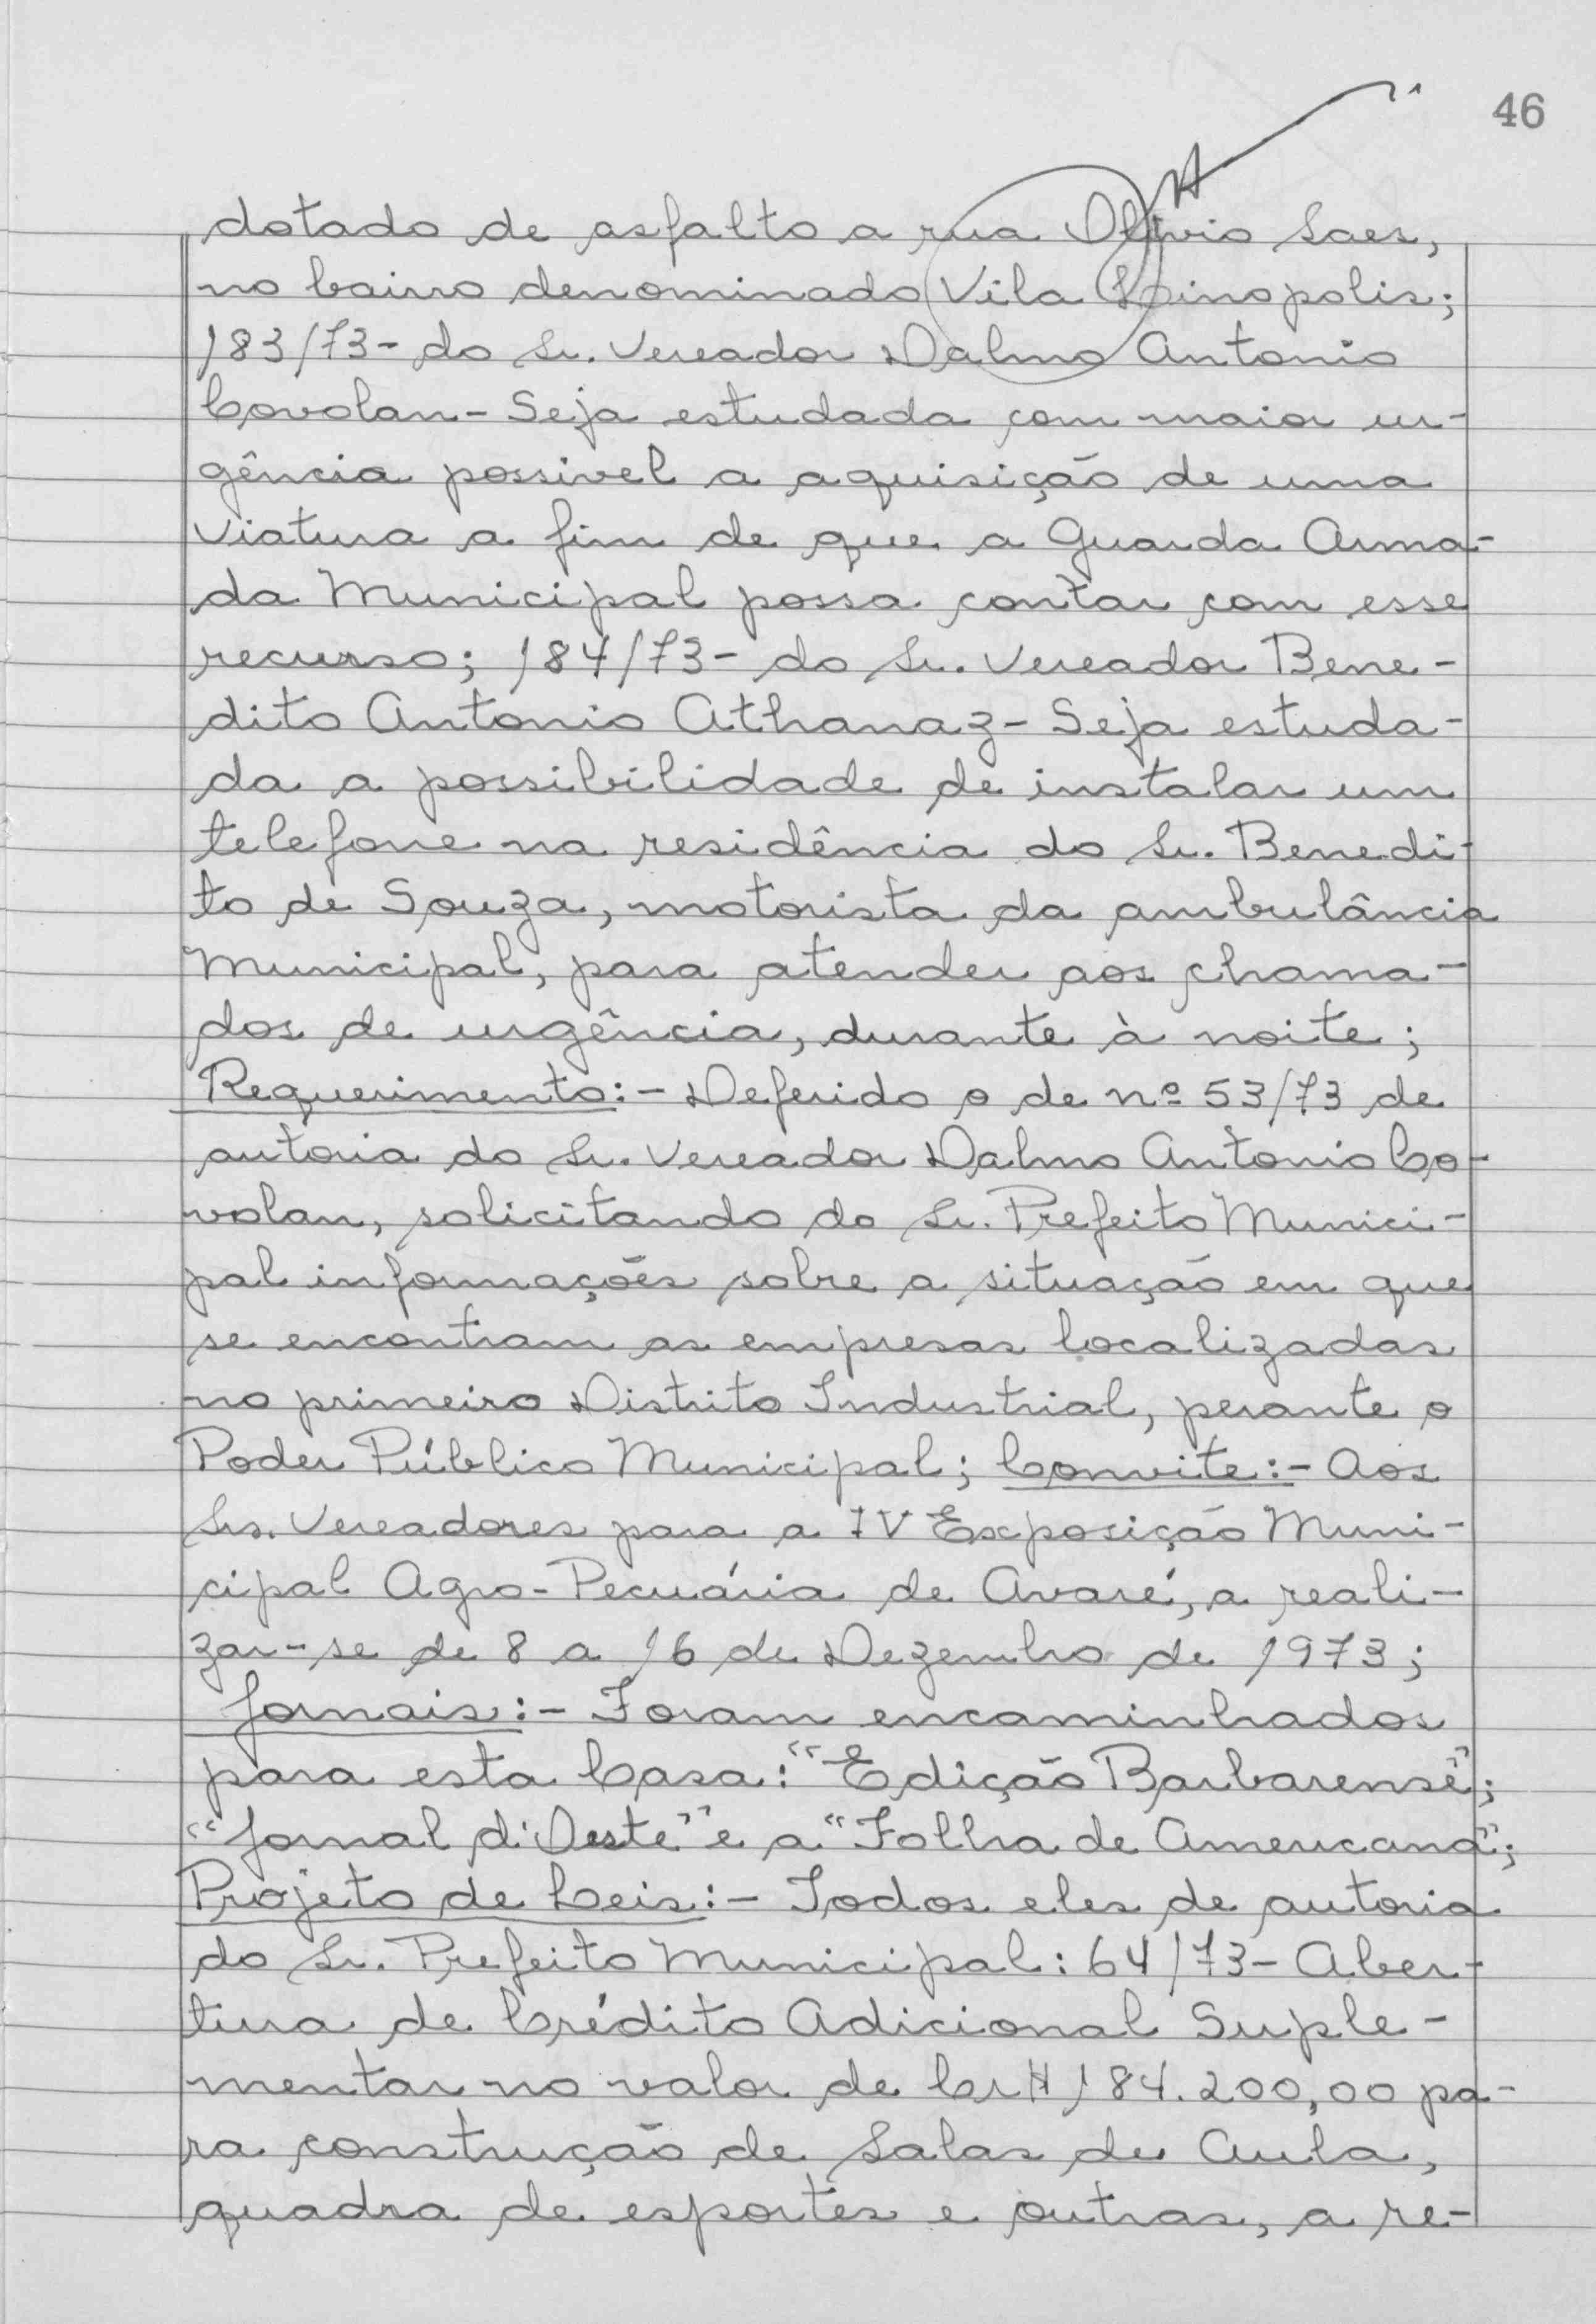 46
dotado de asfalto a rua Olivio Saes,
no bairro denominado Vila Linopolis;
183/73- do Sr. Vereador Dalmo Antonio
Covolan - Seja estudada com maior ur-
gência possivel a aquisição de uma
viatura a fim de que a Guarda Arma-
da Municipal possa contar com esse
recurso; 184/73- do Sr. Vereador Bene-
dito Antonio Athanaz - Seja estuda-
da a possibilidade de instalar um
telefone na residência do Sr. Benedi-
to de Souza, motorista da ambulância
Municipal, para atender aos chama-
dos de urgência, durante à noite;
Requerimento:- Deferido o de nº 53/73 de
autoria do Sr. Vereador Dalmo Antonio Co-
volan, solicitando do Sr. Prefeito Munici-
pal informações sobre a situação em que
se encontram as empresas localizadas
no primeiro Distrito Industrial, perante o
Poder Público Municipal; Convite:- Aos
Srs. Vereadores para a IV Exposição Muni-
cipal Agro-Pecuária de Avaré, a reali-
zar-se de 8 a 16 de Dezembro de 1973;
Jornais:- Foram encaminhados
para esta Casa: "Edição Barbarense";
"Jornal d'Oeste" e a "Folha de Americana";
Projeto de Leis:- Todos eles de autoria
do Sr. Prefeito Municipal: 64/73- Aber-
tura de Crédito Adicional Suple-
mentar no valor de Cr$ 184.200,00 pa-
ra construção de Salas de Aula,
quadra de esportes e outras, a re-